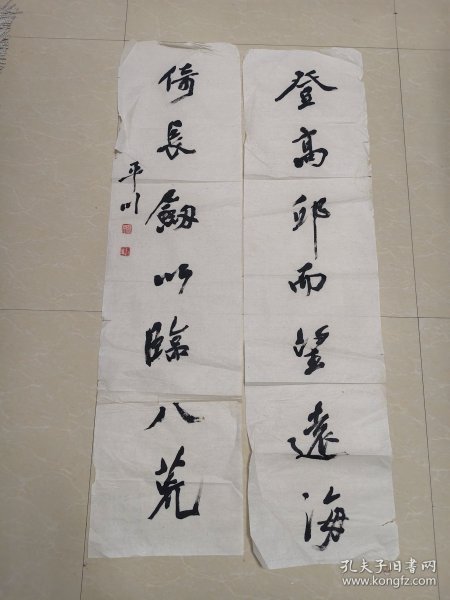 登高邱而望遠海
倚長劔以臨八荒
平川
孔夫子旧书网
www.kongfz.com